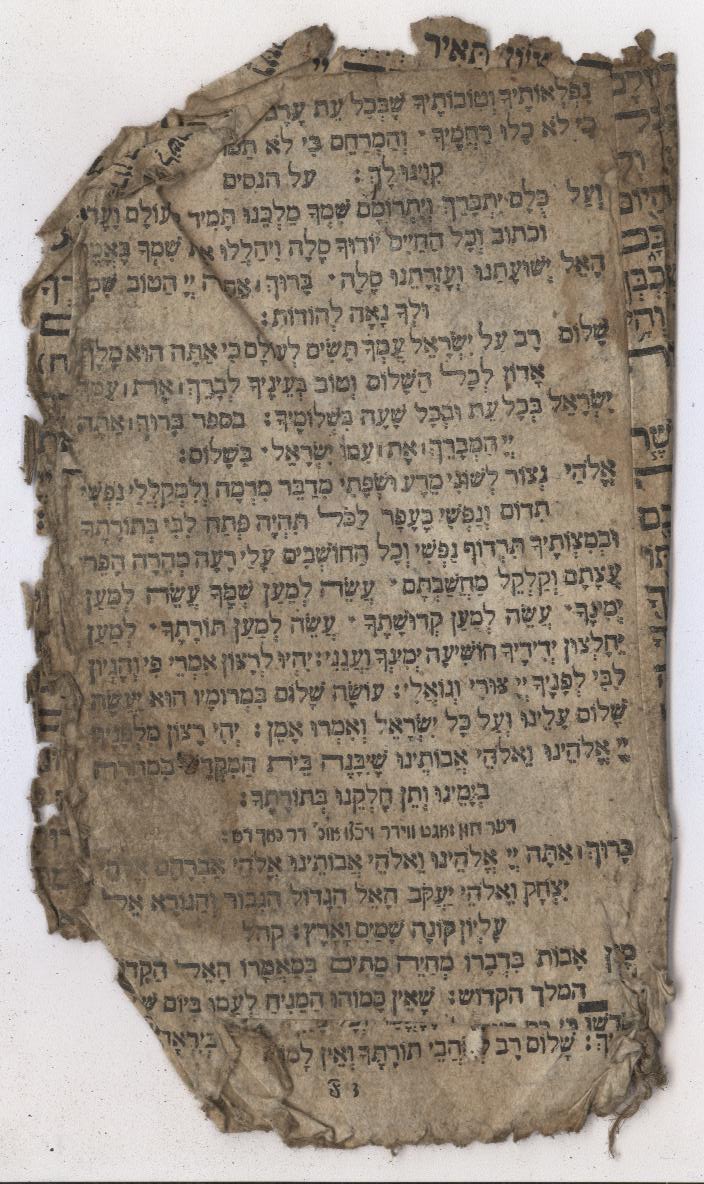 תאיר
נפלאותיך וטובותיך שבכל עת ערב
כי לא כלו רחמיך · והמרחם כי לא תמו
קוינו לך : על הנסים
ועל כלם יתברך ויתרומם שמך מלכנו תמיד לעולם ועד
וכתוב וכל החיים יודוך סלה ויהללו את שמך באמת
האל ישועתנו ועזרתנו סלה · ברוך אתה יי הטוב שמך
ולך נאה להודות :
שלום רב על ישראל עמך תשים לעולם כי אתה הוא מלך
אדון לכל השלום וטוב בעיניך לברך את עמך
ישראל בכל עת ובכל שעה בשלומיך : בספר ברוך אתה
יי המברך את עמו ישראל · בשלום :
אלהי נצור לשוני מרע ושפתי מדבר מרמה ולמקללי נפשי
תדום ונפשי כעפר לכל תהיה פתח לבי בתורתך
ובמצותיך תרדוף נפשי וכל החושבים עלי רעה מהרה הפר
עצתם וקלקל מחשבתם · עשה למען שמך עשה למען
ימינך · עשה למען קדושתך · עשה למען תורתך · למען
יחלצון ידידיך הושיעה ימינך וענני : יהיו לרצון אמרי פי והגיון
לבי לפניך יי צורי וגואלי : עושה שלום במרומיו הוא יעשה
שלום עלינו ועל כל ישראל ואמרו אמן : יהי רצון מלפניך
יי אלהינו ואלהי אבותינו שיבנה בית המקדש במהרה
בימינו ותן חלקנו בתורתך :
דער חזן זאגט ווידר
ברוך אתה יי אלהינו ואלהי אבותינו אלהי אברהם אלהי
יצחק ואלהי יעקב האל הגדול הגבור והנורא אל
עליון קונה שמים וארץ : קהל
מגן אבות בדברו מחיה מתים במאמרו האל הקדוש
המלך הקדוש : שאין כמוהו המניח לעמו ביום
שלום רב לאהבי תורתך ואין למו